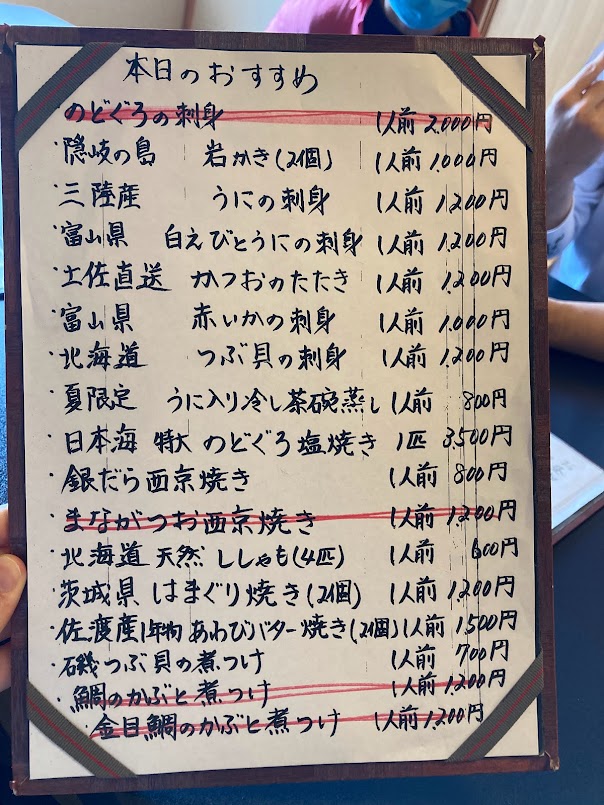 本日のおすすめ
のどぐろの刺身 1人前 2,000円
・隠岐の島 岩かき(2個) 1人前 1,000円
・三陸産 うにの刺身 1人前 1,200円
・富山県 白えびとうにの刺身 1人前 1,200円
・土佐直送 かつおのたたき 1人前 1,200円
・富山県 赤いかの刺身 1人前 1,000円
・北海道 つぶ貝の刺身 1人前 1,200円
・夏限定 うに入り冷し茶碗蒸し 1人前 800円
・日本海 特大 のどぐろ塩焼き 1匹 3,500円
・銀だら西京焼き 1人前 800円
・まながつお西京焼き 1人前 1,200円
・北海道 天然 ししゃも(4匹) 1人前 600円
・茨城県 はまぐり焼き(2個) 1人前 1,200円
・佐渡産1年物 あわびバター焼き(2個) 1人前 1,500円
・磯つぶ貝の煮つけ 1人前 700円
・鯛のかぶと煮つけ 1人前 1,200円
・金目鯛のかぶと煮つけ 1人前 1,200円